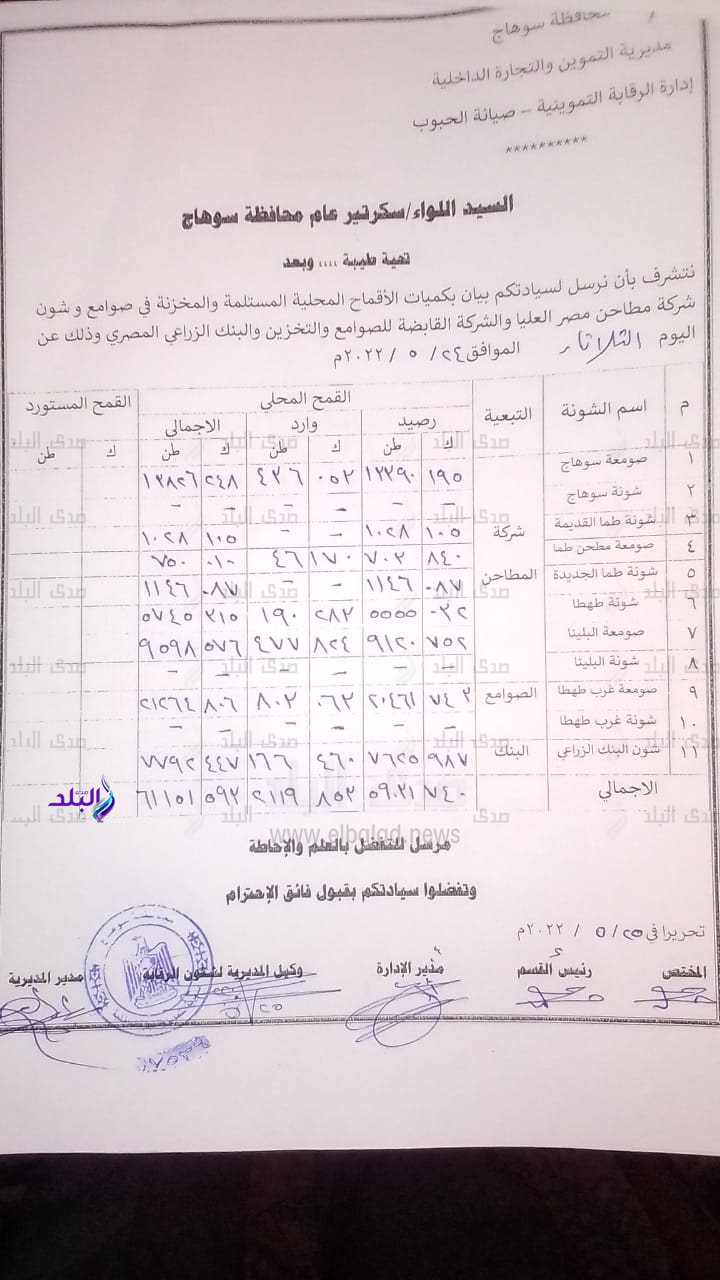 محافظة سوهاج
مديرية التموين والتجارة الداخلية
إدارة الرقابة التموينية – صيانة الحبوب
**********
السيد اللواء/سكرتير عام محافظة سوهاج
تحية طيبة .... وبعد
نتشرف بأن نرسل لسيادتكم بيان بكميات الأقماح المحلية المستلمة والمخزنة في صوامع و شون
شركة مطاحن مصر العليا والشركة القابضة للصوامع والتخزين والبنك الزراعي المصري وذلك عن
اليوم الثلاثاء الموافق ٢٤ / ٥ / ٢٠٢٢م
م اسم الشونة التبعية القمح المحلي القمح المستورد
رصيد وارد الاجمالي
ك طن ك طن ك طن ك طن
١ صومعة سوهاج ١٩٥ ١٢٣٩٠ ٠٥٢ ٤٣٦ ٢٤٨ ١٢٨٢٦
٢ شونة سوهاج – – – – – –
٣ شونة طما القديمة شركة ١٠٥ ١٠٢٨ – – ١٠٥ ١٠٢٨
٤ صومعة مطحن طما ٨٤٠ ٧٠٣ ١٧٠ ٤٦ ٠١٠ ٧٥٠
٥ شونة طما الجديدة المطاحن ٠٨٧ ١١٤٦ – – ٠٨٧ ١١٤٦
٦ شونة طهطا ٢٨٢ ١٩٠ ٣١٥ ٥٧٤٥
٧ صومعة البلينا ٧٥٢ ٩١٢٠ ٨٢٤ ٤٧٧ ٥٧٦ ٩٥٩٨
٨ شونة البلينا – – – – – –
٩ صومعة غرب طهطا الصوامع ٧٤٣ ٢٠٤٦١ ٠٦٣ ٨٠٢ ٨٠٦ ٢١٢٦٤
١٠ شونة غرب طهطا – – – – – –
١١ شون البنك الزراعي البنك ٩٨٧ ٧٦٢٥ ٤٦٠ ١٦٦ ٤٤٧ ٧٧٩٢
الاجمالي ٧٤٠ ٥٩٠٣١ ٨٥٢ ٢١١٩ ٥٩٢ ٦١١٥١
صدى البلد
www.elbalad.news
مرسل للتفضل بالعلم والإحاطة
وتفضلوا سيادتكم بقبول فائق الإحترام
تحريرا في ٢٥ / ٥ / ٢٠٢٢م
المختص رئيس القسم مدير الإدارة وكيل المديرية لشئون الرقابة مدير المديرية
٥/٢٥